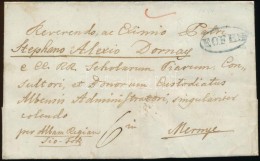 Reverendo, ac Eximio Patri
Stephano Alexio Dornay
e CC. RR. Scholarum Piarum, Con-
sultori, et Bonorum Custodiatus
Albensis Administratori, singulariter
colendo
per Albam Regiam
Sió-Fok
6
in
Mernye